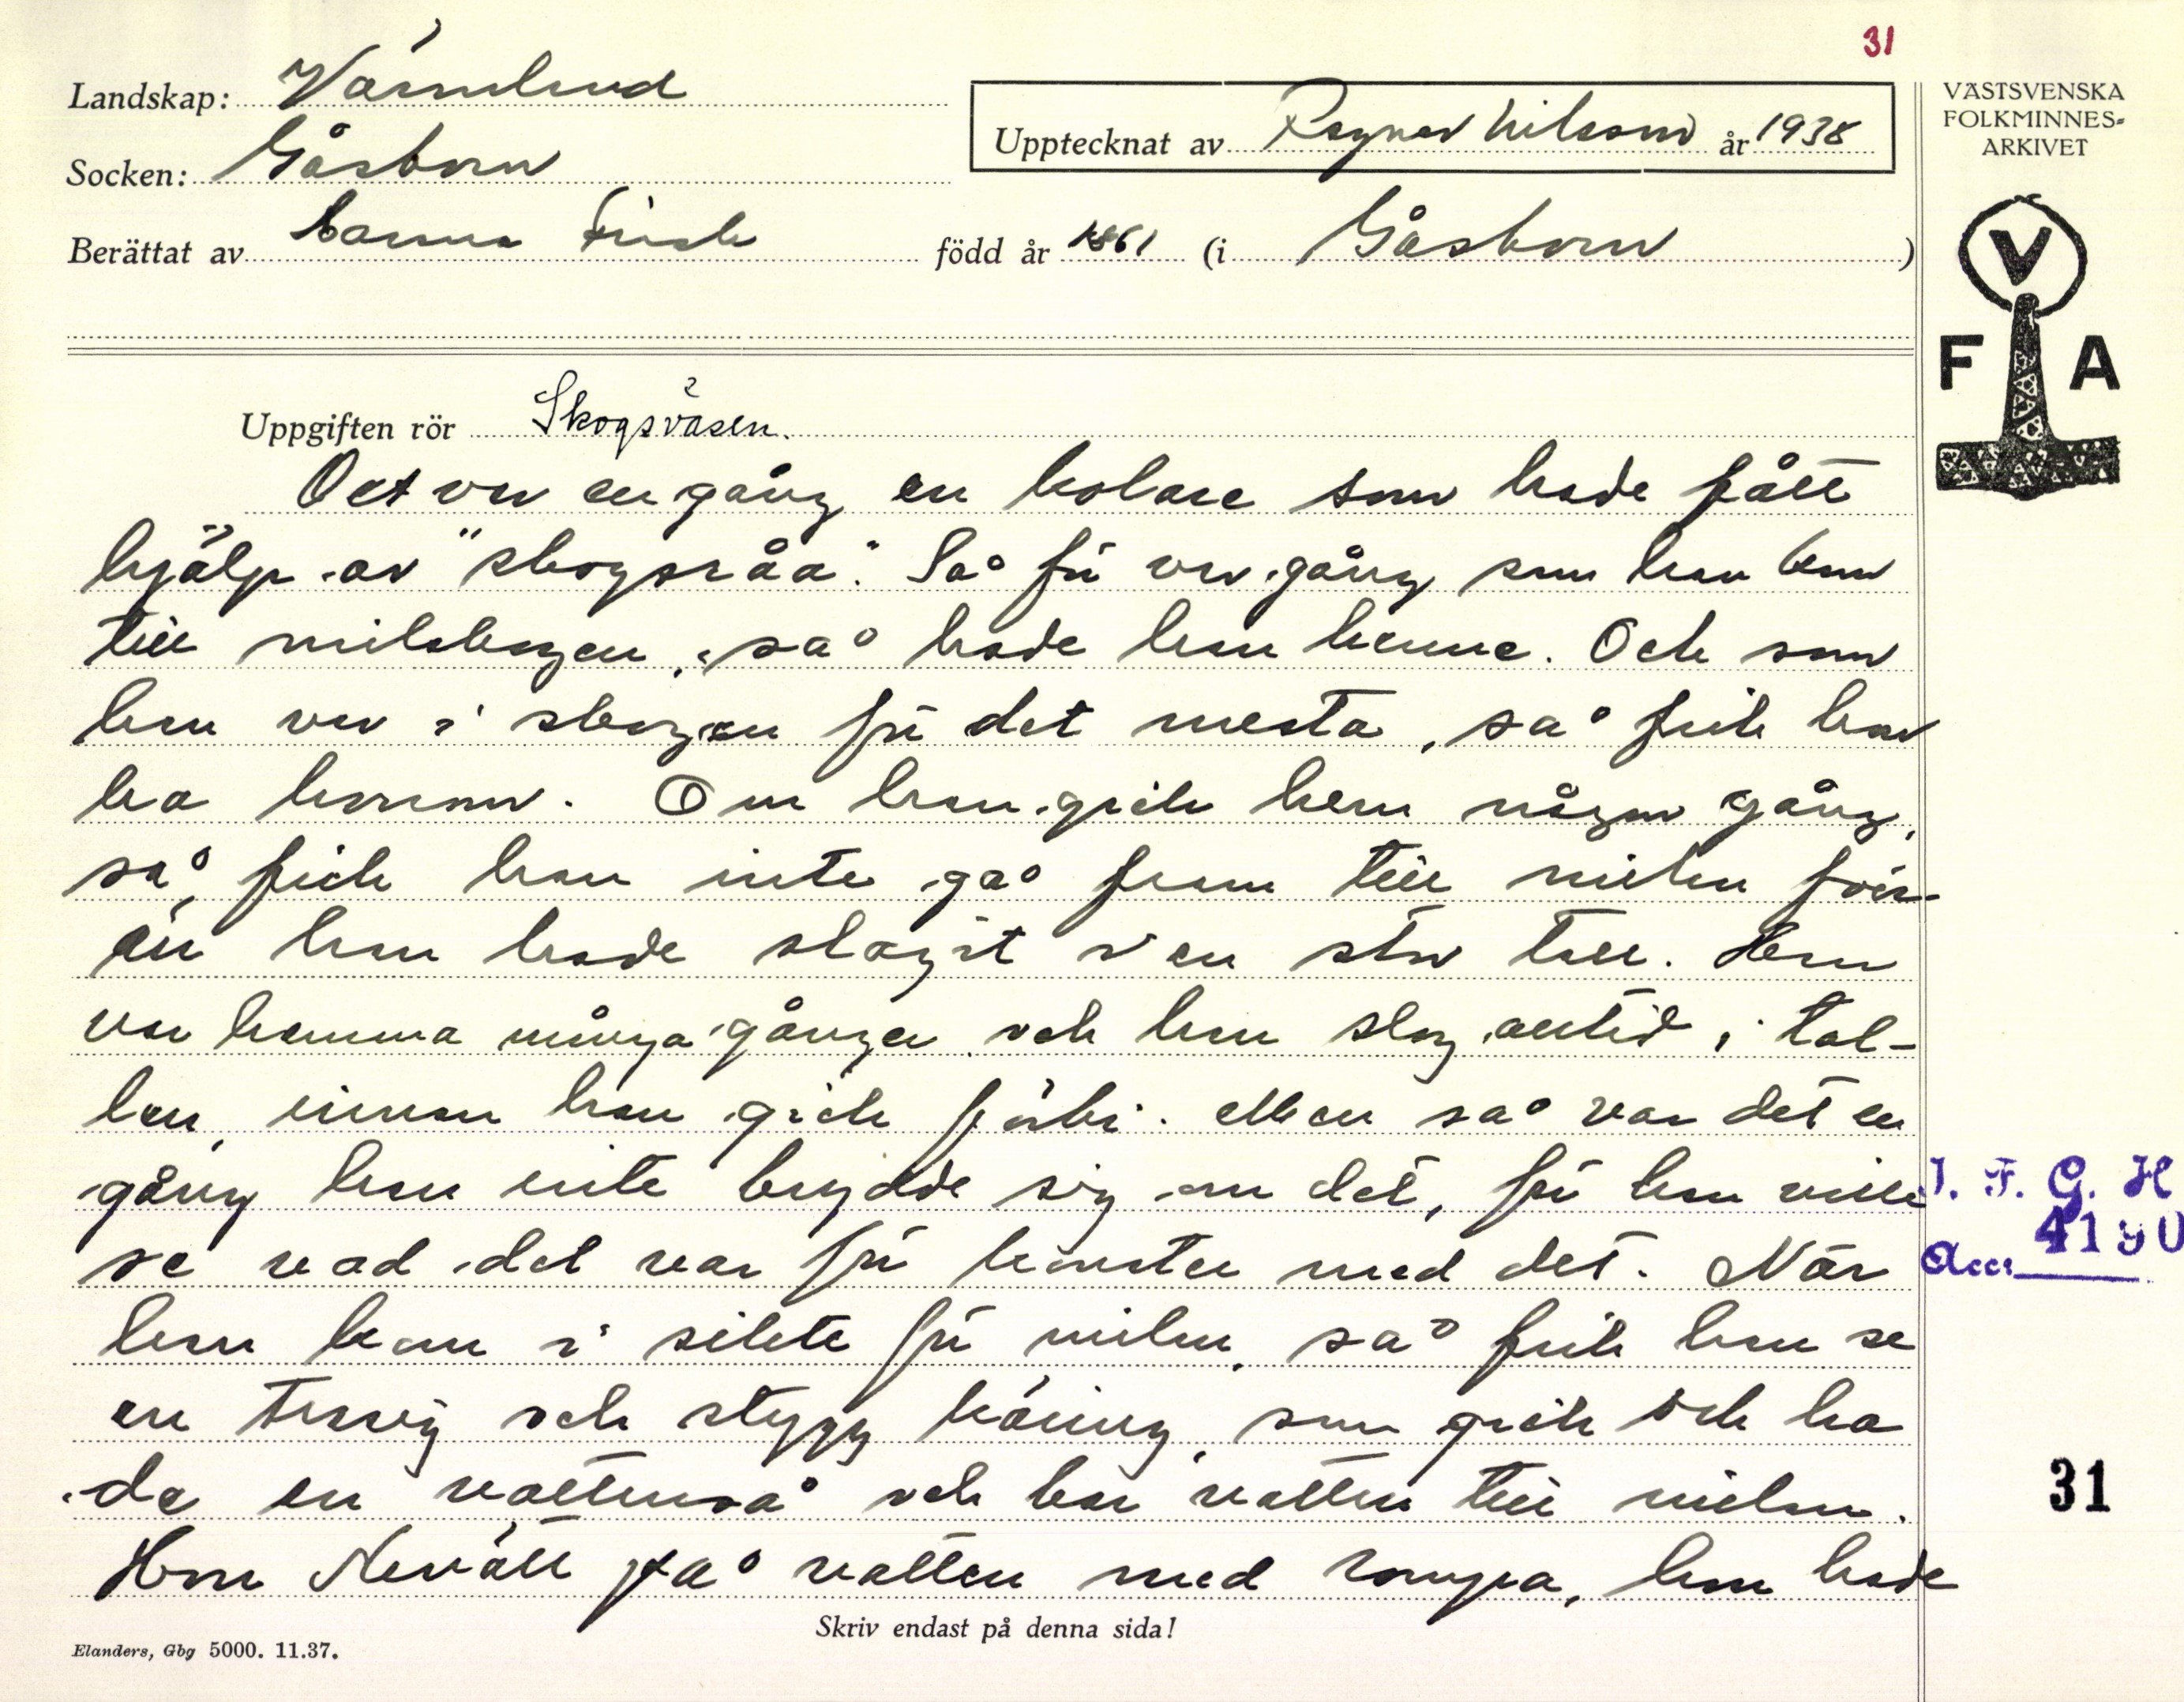 31
Landskap: Värmland
Socken: Gåsborn
Upptecknat av Ragnar Nilsson år 1938
Berättat av Sanna Frisk född år 1861 (i Gåsborn)
VÄSTSVENSKA
FOLKMINNES-
ARKIVET
V
F A
Uppgiften rör Skogsväsen.
Det var en gång en kolare som hade fått
hjälp av "skogsråa". Så för var gång som han kom
till milskogen, så hade han henne. Och som
han var i skogen för det mesta, så fick han
ha honom. Om han gick hem någon gång,
så fick han inte gå fram till milan förr-
än han hade slagit i en stor tall. Han
var hemma många gånger och han slog alltid i tal-
len, innan han gick förbi. Men så var det en
gång han inte brydde sig om det, för han ville
se vad det var för konster med det. När
han kom i sikte för milan, så fick han se
en trasig och stygg käring, som gick och ha
de en vattenså och bar vatten till milan.
Hon skvätt på vatten med rumpa, hon hade
I. F. G. H
Acc. 4190
31
Skriv endast på denna sida!
Elanders, Gbg 5000. 11.37.